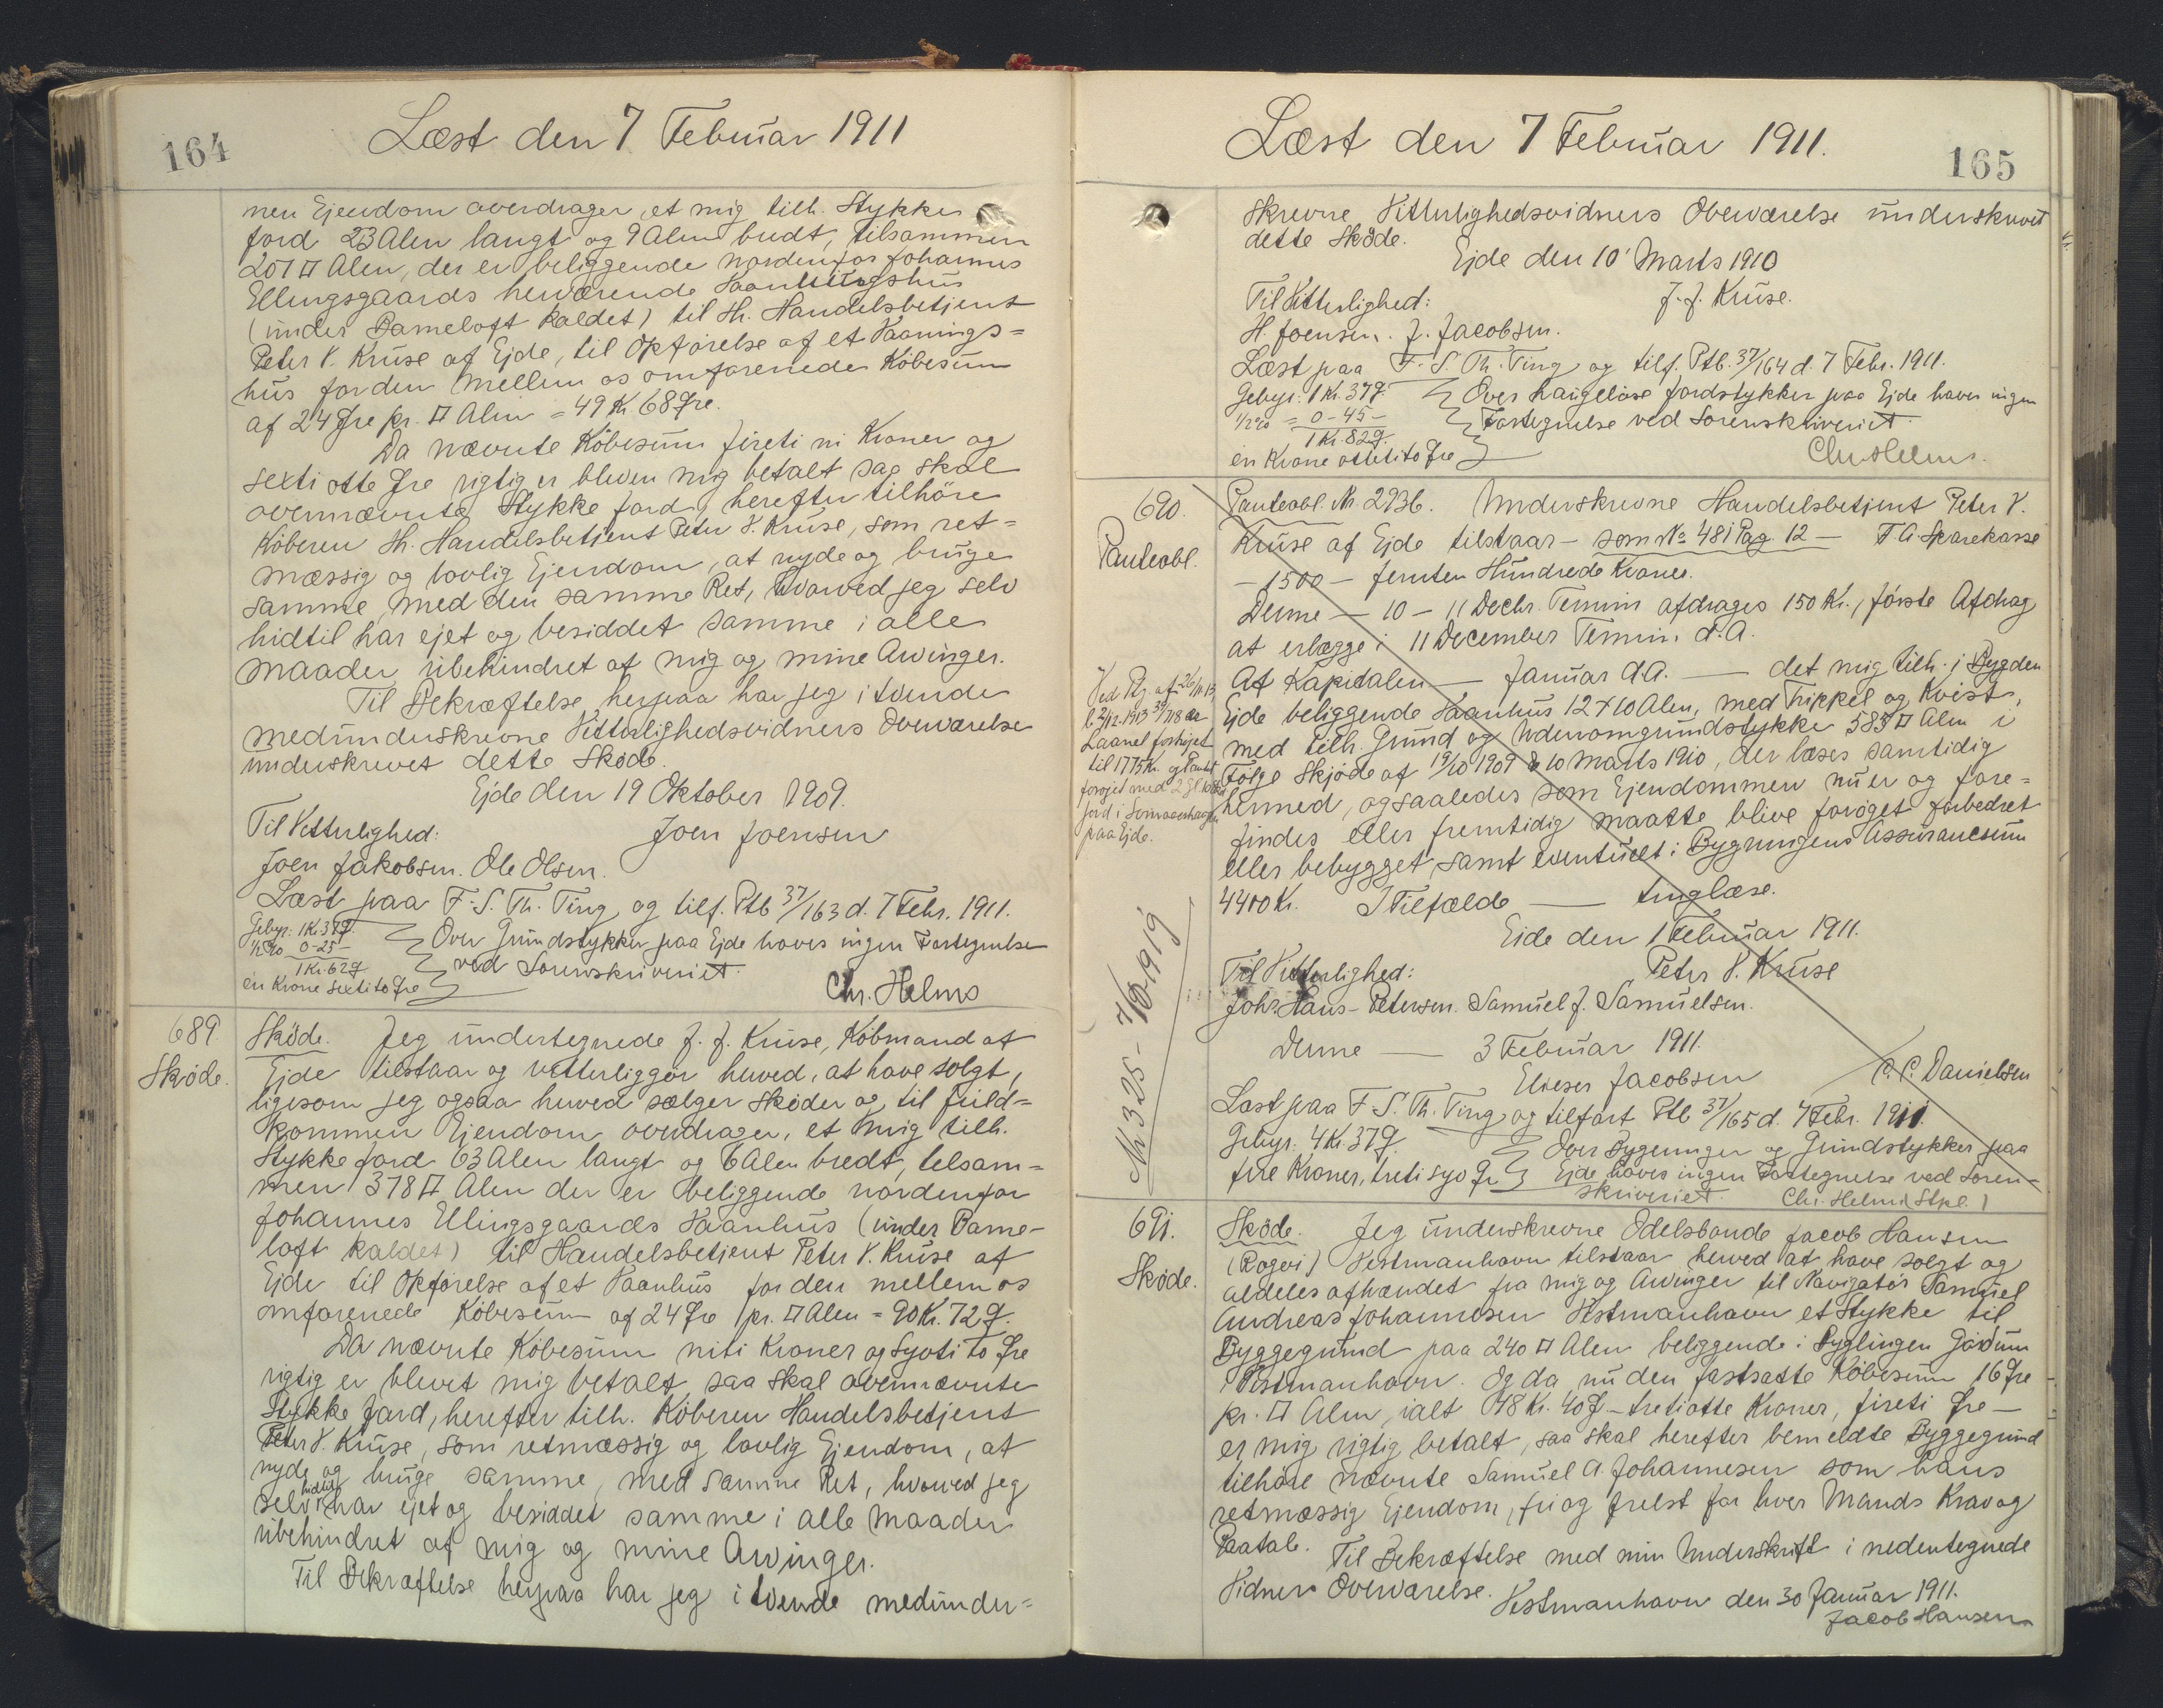 164
Læst den 7 Februar 1911
nen Ejendom overdrager, et mig tilh. Stykke
Jord 23 Alen langt og 9 Alen bredt, tilsammen
207 □ Alen, der er beliggende nordenfor Johannes
Ellingsgaards herværende Vaaningshus
(under Bameloft kaldet) til Hr. Handelsbetjent
Peter V. Kruse af Ejde, til Opførelse af et Vaanings=
hus for den mellem os omforenede Köbesum
af 24 Øre pr. □ Alen = 49 Kr. 68 Øre.
Da nævnte Köbesum fireti ni Kroner og
sexti otte Øre rigtig er bleven mig betalt saa skal
ovennævnte Stykke Jord, herefter tilhöre
Köberen Hr. Handelsbetjent Peter V. Kruse, som ret=
mæssig og lovlig Ejendom, at nyde og bruge
samme, med den samme Ret, hvorved jeg selv
hidtil har ejet og besiddet samme i alle
Maader ubehindret af mig og mine Arvinger.
Til Bekræftelse herpaa har jeg i tvende
medunderskrevne Vitterlighedsvidners Overværelse
underskrevet dette Skøde.
Ejde den 19 Oktober 1909.
Til Vitterlighed:
Joen Joensen
Joen Jakobsen. Ole Olsen.
Læst paa F. S. Th. Ting og tilf. Ptb 37/163 d. 7 Febr. 1911.
Gebyr: 1 Kr. 37 Ø.
½ % 0-25-
1 Kr. 62 Ø.
en Krone sextito Øre
Over Grundstykker paa Ejde haves ingen Fortegnelse
ved Sorenskriveriet.
Chr. Helms
689.
Skøde.
Sköde. Jeg undertegnede J. J. Kruse, Köbmand af
Ejde tilstaar og vitterliggör herved, at have solgt,
ligesom jeg ogsaa herved sælger skøder og til fuld=
kommen Ejendom overdrager, et mig tilh.
Stykke Jord 63 Alen langt og 6 Alen bredt, tilsam=
men 378 □ Alen der er beliggende nordenfor
Johannes Ellingsgaards Vaanhus (under Bame-
loft kaldet) til Handelsbetjent Peter V. Kruse af
Ejde til Opførelse af et Vaanhus for den mellem os
omforenede Köbesum af 24 Øre pr. □ Alen = 90 Kr. 72 Ø.
Da nævnte Köbesum niti Kroner og syvti to Øre
rigtig er blevet mig betalt, saa skal ovennævnte
Stykke Jord, herefter tilh. Köberen Handelsbetjent
Peter V. Kruse, som retmæssig og lovlig Ejendom, at
nyde og bruge samme, med samme Ret, hvorved jeg
selv hidtil har ejet og besiddet samme i alle Maader
ubehindret af mig og mine Arvinger.
Til Bekræftelse herpaa har jeg i tvende medunder=
Læst den 7 Februar 1911.
165
skrevne Vitterlighedsvidners Overværelse underskrevet
dette Sköde.
Ejde den 10' Marts 1910
Til Vitterlighed:
J. J. Kruse.
H Joensen. J. Jacobsen.
Læst paa F. S. Th. Ting og tilf. Ptb. 37/164 d. 7 Febr. 1911.
Gebyr: 1 Kr. 37 Ø.
½ % = 0-45-
1 Kr. 82 Ø.
en Krone ottetito Øre
Over haugeløse Jordstykker paa Ejde haves ingen
Fortegnelse ved Sorenskriveriet.
Chr. Helms.
690.
Panteobl.
Panteobl. Nr. 2936. Underskrevne Handelsbetjent Peter V.
Kruse af Ejde tilstaar - som No 481 Pag. 12 - F. A. Sparekasse
- 1500 - femten Hundrede Kroner.
Denne - 10 - 11 Decbr. Termin afdrages 150 Kr., förste Afdrag
at erlægge i 11 December Termin. d. A.
Af Kapitalen - Januar d. A. - det mig tilh. i Bygden
Ejde beliggende Vaanhus 12 × 10 Alen, med Trippel og Kvist,
med tilh. Grund og Udenomgrundstykke 585 □ Alen i
Følge Skjøde af 19/10 1909 & 10 Marts 1910, der læses samtidig
hermed, ogsaaledes som Ejendommen nu er og fore=
findes eller fremtidig maatte blive forøget forbedret
eller bebygget samt eventuelt i Bygningens Assurancesum
4400 Kr. I Tilfælde - tinglæse.
Eide den 1 Februar 1911.
Til Vitterlighed:
Peter V. Kruse
Johs. Hans-Petersen. Samuel J. Samuelsen.
Denne - 3 Februar 1911.
Elieser Jacobsen
C. C. Danielsen
Læst paa F. S. Th. Ting og tilført Ptb 37/165 d. 7 Febr. 1911.
Gebyr. 4 Kr. 37 Ø.
fire Kroner, tretisyv Ør.
Over Bygninger og Grundstykker paa
Ejde haves ingen Fortegnelse ved Soren-
skriveriet
Chr. Helms (Stpl.)
Ved Paateg. af 26/11 13,
l. 2/12. 1913 39/718 er
Laanet forhøjet
til 1775 Kr. og Pantet
forøget med 2 Gl.
Jord i
paa Ejde.
Nr 325 - 7/6 1919
691.
Skøde.
Sköde. Jeg underskrevne Odelsbonde Jacob Hansen
(Rogvi) Vestmanhavn tilstaar herved at have solgt og
aldeles afhændet fra mig og Arvinger til Navigatör Samuel
Andreas Johannesen Vestmanhavn et Stykke til
Byggegrund paa 240 □ Alen beliggende i Byglingen Gördum
Vestmanhavn. Og da nu den fastsatte Köbesum 16 Øre
pr. □ Alen, ialt 38 Kr. 40 Ø - tretiotte Kroner, fireti Øre -
er mig rigtig betalt, saa skal herefter bemeldte Byggegrund
tilhöre nævnte Samuel A. Johannesen som hans
retmæssig Ejendom, fri og frelst for hver Mands Krav og
Paatale. Til Bekræftelse med min Underskrift i nedentegnede
Vidners Overværelse. Vestmanhavn den 30 Januar 1911.
Jacob Hansen